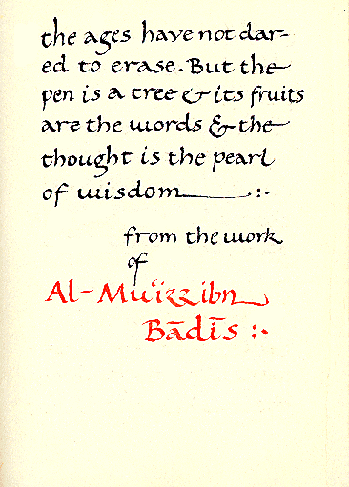 the ages have not dar-
ed to erase. But the
pen is a tree & its fruits
are the words & the
thought is the pearl
of wisdom :·
from the work
of
Al-Mu'izz ibn
Bādīs :·